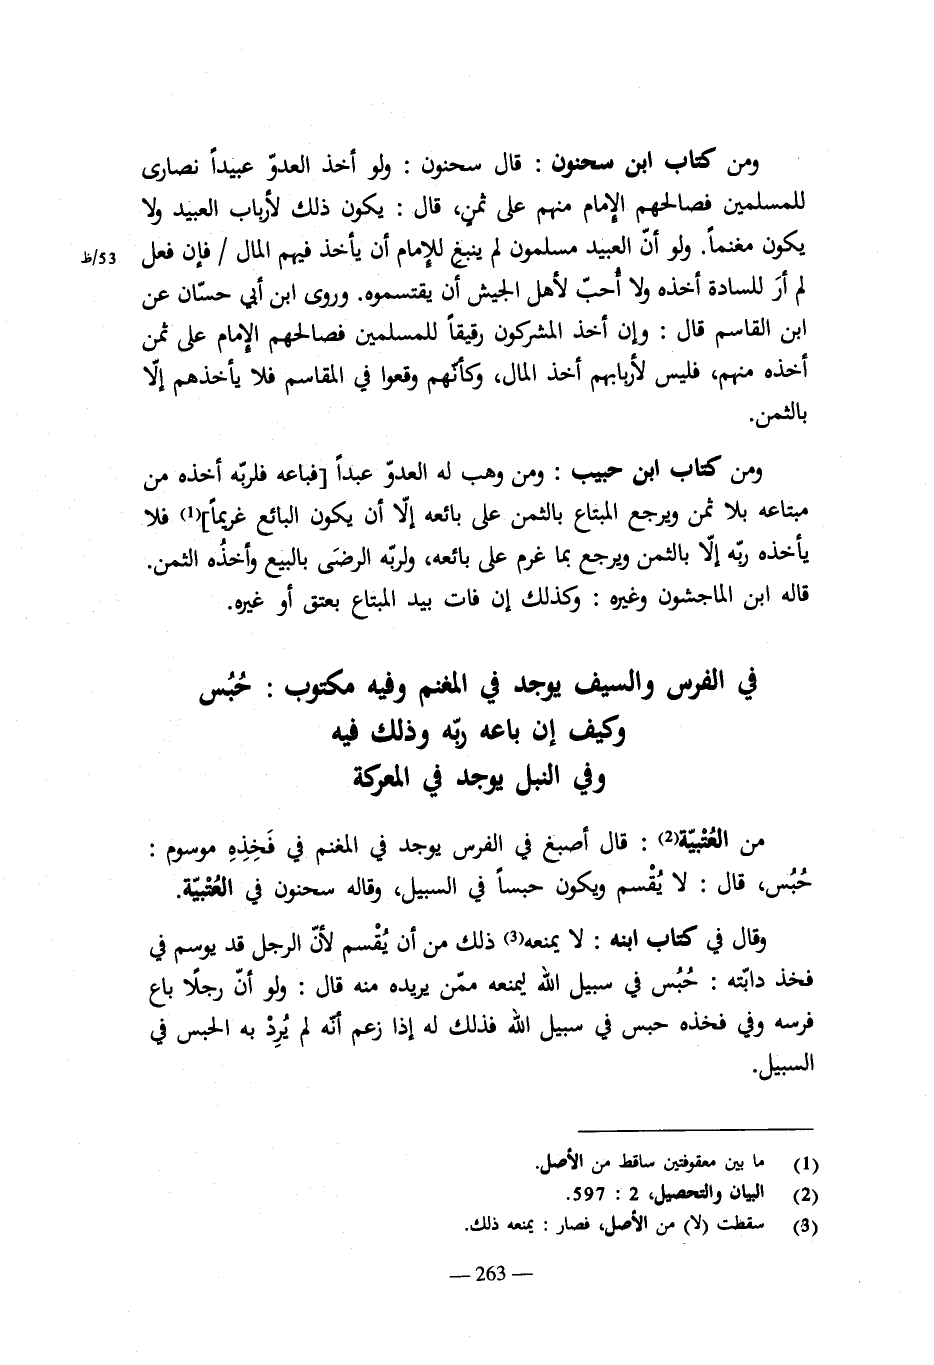 ومن كتاب ابن سحنون : قال سحنون : ولو أخذ العدوّ عبيداً نصارى
للمسلمين فصالحهم الإمام منهم على ثمنٍ، قال : يكون ذلك لأرباب العبيد ولا
يكون مغنماً. ولو أنّ العبيد مسلمون لم ينبغ للإمام أن يأخذ فيهم المال / فإن فعل 53/ظ
لم أرَ للسادة أخذه ولا أُحبّ لأهل الجيش أن يقتسموه. وروى ابن أبي حسّان عن
ابن القاسم قال : وإن أخذ المشركون رقيقاً للمسلمين فصالحهم الإمام على ثمن
أخذه منهم، فليس لأربابهم أخذ المال، وكأنّهم وقعوا في المقاسم فلا يأخذهم إلّا
بالثمن.
ومن كتاب ابن حبيب : ومن وهب له العدوّ عبداً [فباعه فلربّه أخذه من
مبتاعه بلا ثمن ويرجع المبتاع بالثمن على بائعه إلّا أن يكون البائع غريماً](1) فلا
يأخذه ربّه إلّا بالثمن ويرجع بما غرم على بائعه، ولربّه الرضَى بالبيع وأخذُه الثمن.
قاله ابن الماجشون وغيره : وكذلك إن فات بيد المبتاع بعتق أو غيره.
في الفرس والسيف يوجد في المغنم وفيه مكتوب : حُبُس
وكيف إن باعه ربّه وذلك فيه
وفي النبل يوجد في المعركة
من العُتْبيّة(2) : قال أصبغ في الفرس يوجد في المغنم في فَخِذِهِ موسوم :
حُبُس، قال : لا يُقْسم ويكون حبساً في السبيل، وقاله سحنون في العُتْبيّة.
وقال في كتاب ابنه : لا يمنعه(3) ذلك من أن يُقْسم لأنّ الرجل قد يوسم في
فخذ دابّته : حُبُس في سبيل الله ليمنعه ممّن يريده منه قال : ولو أنّ رجلًا باع
فرسه وفي فخذه حبس في سبيل الله فذلك له إذا زعم أنّه لم يُرِدْ به الحبس في
السبيل.
(1) ما بين معقوفتين ساقط من الأصل.
(2) البيان والتحصيل، 2 : 597.
(3) سقطت (لا) من الأصل، فصار : يمنعه ذلك.
— 263 —